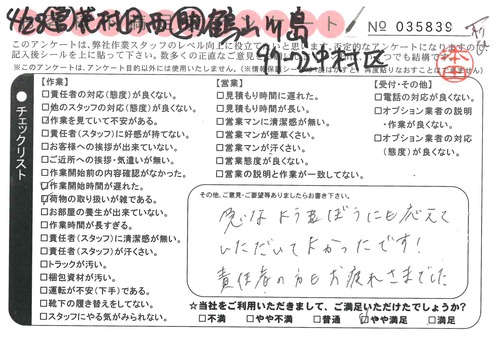 4/28 花村 西 鶴山 川島
ート
No 035839
99-02 中村区
このアンケートは、弊社作業スタッフのレベル向上に役立て
記入後シールを上に貼って下さい。数多くの正直なご意見
※このアンケートは、アンケート目的以外には使用いたしません。
本
チェックリスト
【作業】
□責任者の対応(態度)が良くない。
□他のスタッフの対応(態度)が良くない。
□作業を見ていて不安がある。
□責任者(スタッフ)に好感が持てない。
□お客様への挨拶が出来ていない。
□ご近所への挨拶・気遣いが無い。
□作業開始前の内容確認がなかった。
□作業開始時間が遅れた。
□荷物の取り扱いが雑である。
□お部屋の養生が出来ていない。
□作業時間が長すぎる。
□責任者(スタッフ)に清潔感が無い。
□責任者(スタッフ)が汗くさい。
□トラックが汚い。
□梱包資材が汚い。
□運転が不安(下手)である。
□靴下の履き替えをしてない。
□スタッフにやる気がみられない。
【営業】
□見積もり時間に遅れた。
□見積もり時間が長い。
□営業マンに清潔感が無い。
□営業マンが煙草くさい。
□営業マンが汗くさい。
□営業態度が良くない。
□営業の説明と作業が一致してない。
【受付・その他】
□電話の対応が良くない。
□オプション業者の説明
・作業が良くない。
□オプション業者の対応
(態度)が良くない。
その他、ご意見・ご要望等ありましたらお書き下さい。
急なようぼうにも応えて
いただいてよかったです!
責任者の方もお疲れさまでした
☆当社をご利用いただきまして、ご満足いただけたでしょうか?
□不満 □やや不満 □普通 □やや満足 □満足